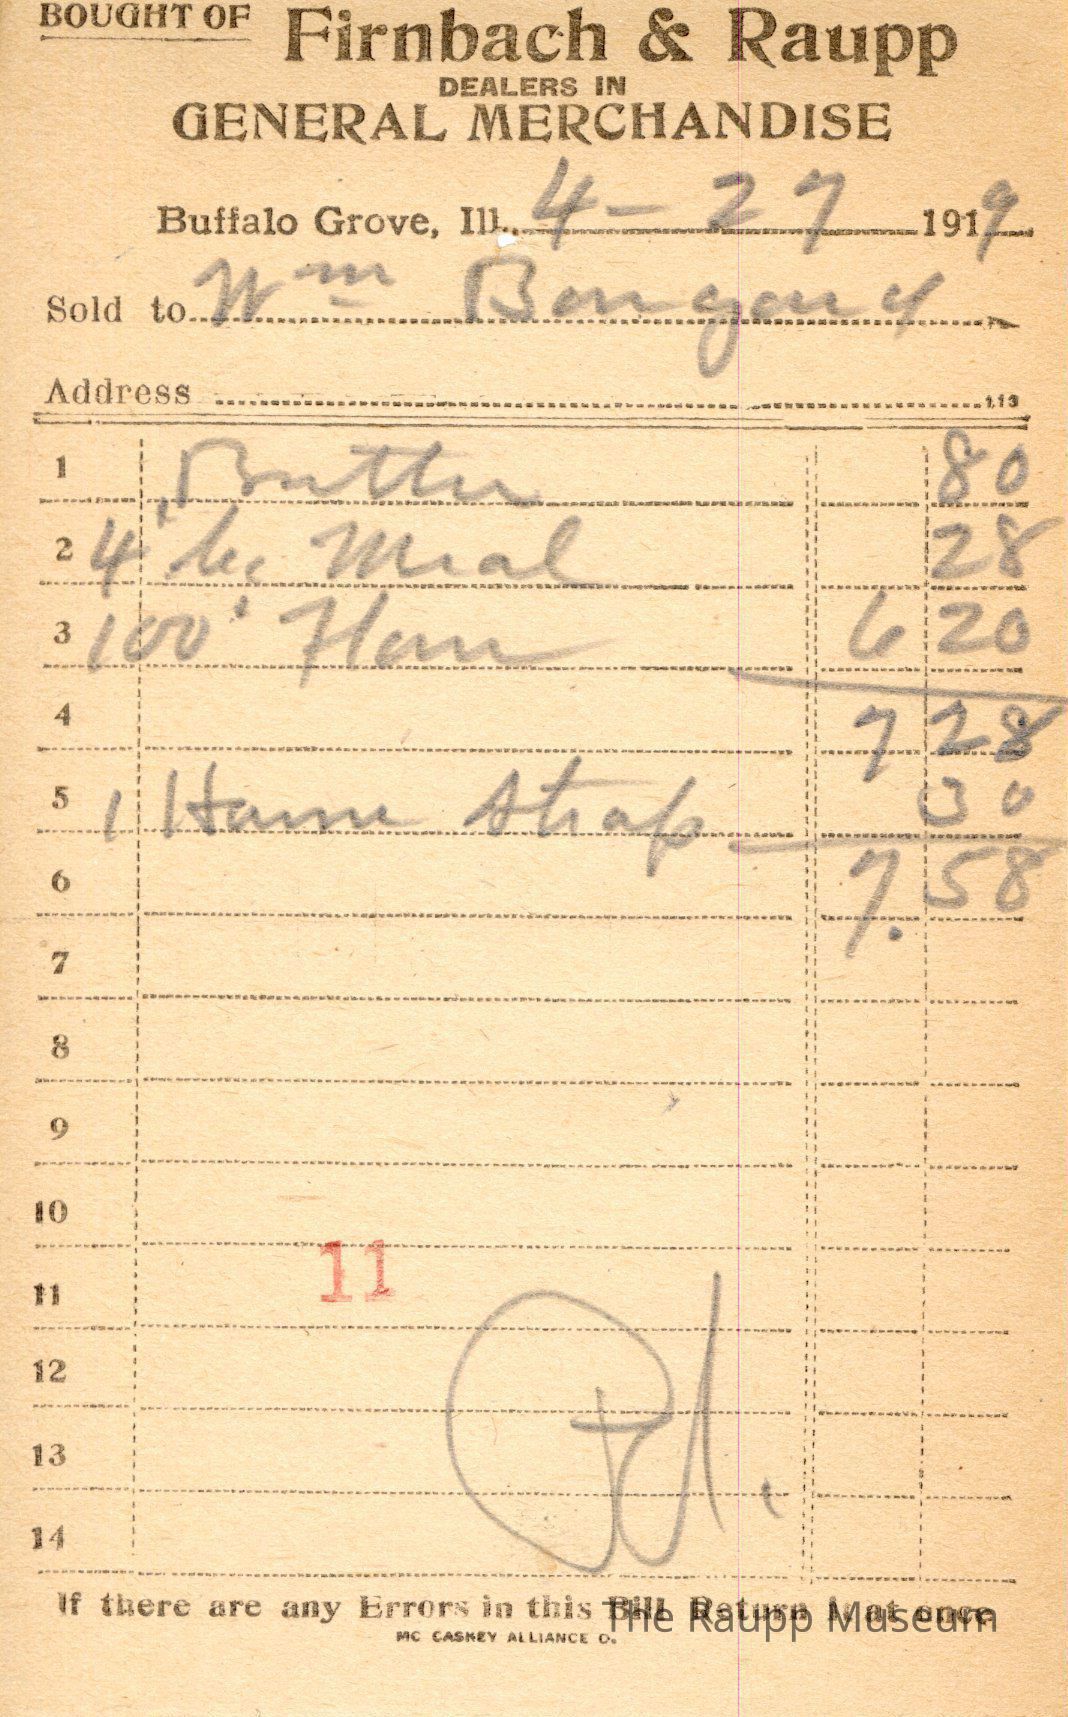 BOUGHT OF
Firnbach & Raupp
DEALERS IN
GENERAL MERCHANDISE
Buffalo Grove, Ill., 4-27 1919
Sold to Wm Bongard
Address
113
1 Butter 80
2 4 lbs Meal 28
3 100' Flour 6 20
4 7 28
5 1 Hame Strap 30
6 7.58
7
8
9
10
11
11
12
13
14
Pd.
If there are any Errors in this Bill Return it at once
The Raupp Museum
MC CASKEY ALLIANCE O.